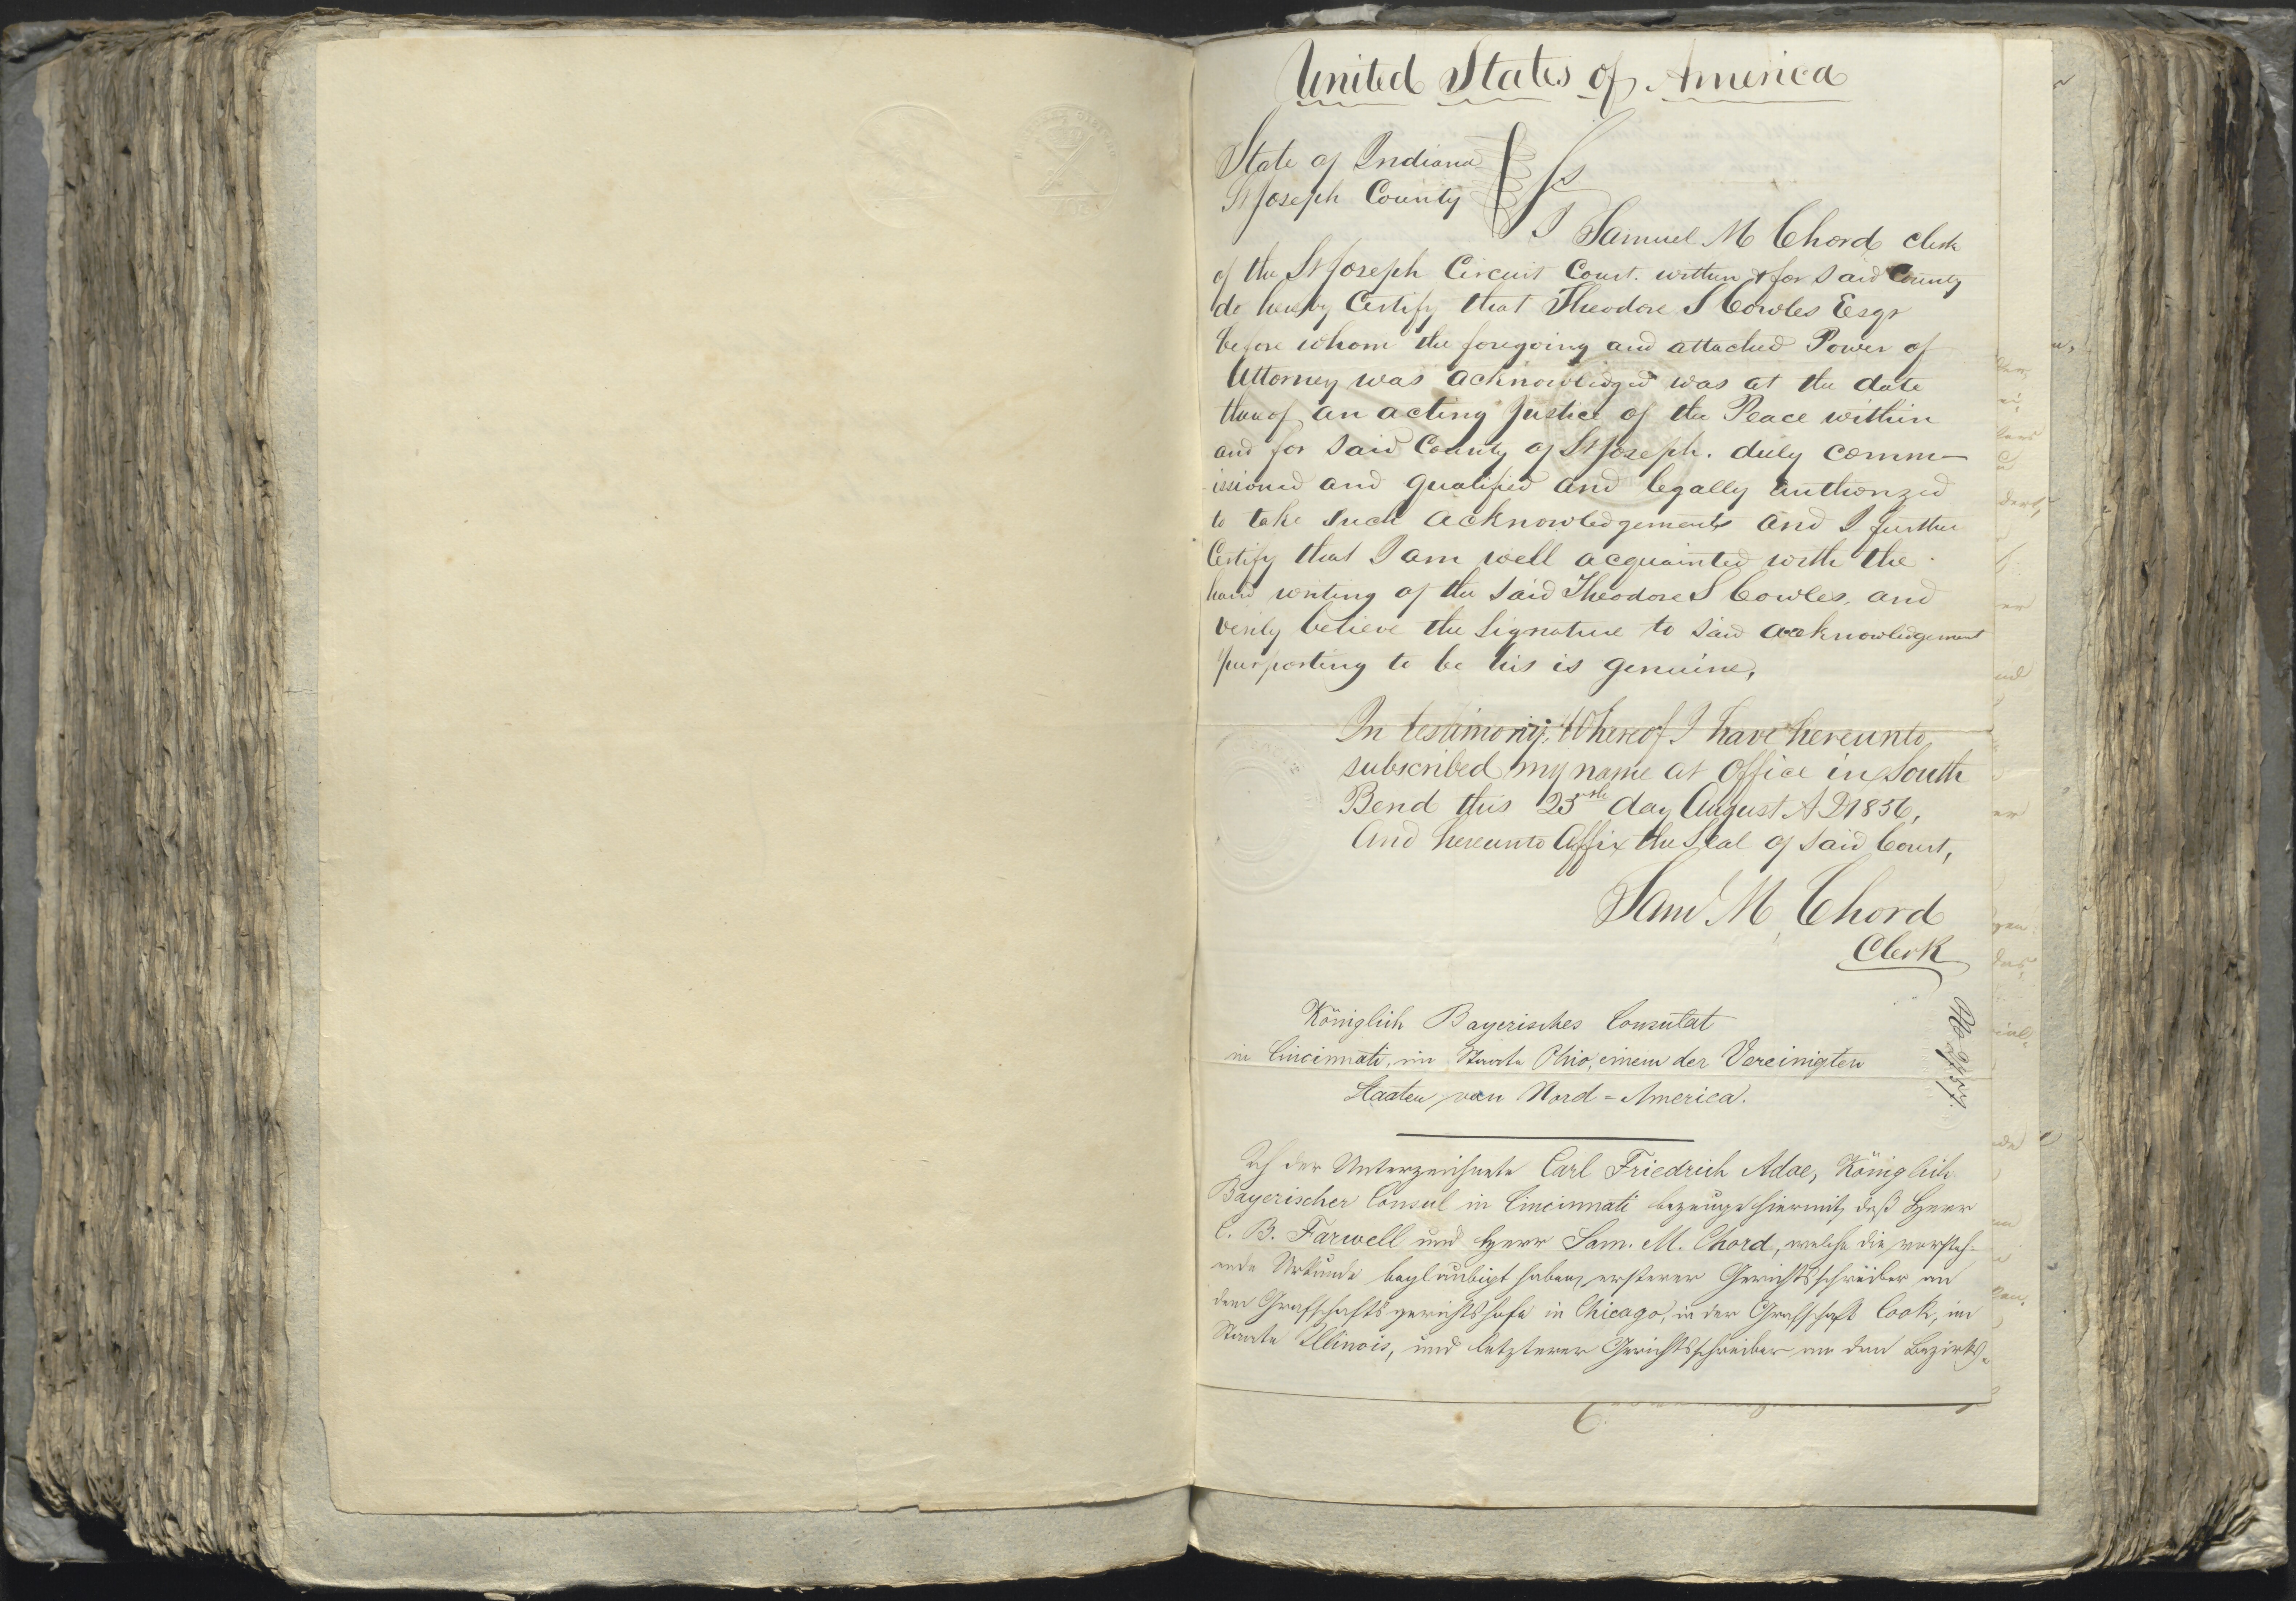 United States of America
State of Indiana
St Joseph County } Ss
I Samuel M Chord clerk
of the St Joseph Circuit Court. within & for said County
do hereby Certify that Theodore S Cowles Esqr
before whom the foregoing and attached Power of
Attorney was acknowledged was at the date
thereof an acting Justice of the Peace within
and for said County of St Joseph. duly comm-
issioned and qualified and legally authorized
to take such acknowledgements and I further
Certify that I am well acquainted with the
hand writing of the said Theodore S Cowles, and
verily believe the signature to said acknowledgement
purporting to be his is genuine,
In testimony Whereof I have hereunto
subscribed my name at Office in South
Bend this 25th day August A D 1856,
And hereunto Affix the Seal of said Court,
Saml M, Chord
Clerk
Königlich Bayerisches Consulat
in Cincinnati, im Staate Ohio, einem der Vereinigten
Staaten von Nord-America.
Ich der Unterzeichnete Carl Friedrich Adae, Königlich
Bayerischer Consul in Cincinnati bezeuge hiermit, daß Herr
C. B. Farwell und Herr Sam. M. Chord, welche die vorsteh-
ende Urkunde beglaubigt haben, ersterer Gerichtsschreiber an
dem Grafschaftsgerichtshofe in Chicago, in der Grafschaft Cook, im
Staate Illinois, und letzterer Gerichtsschreiber an dem Bezirks-